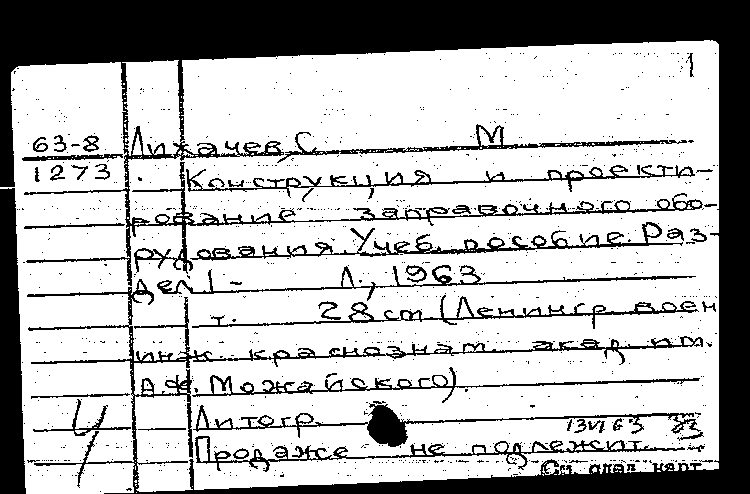 1
63-8 Лихачев, С М
1273 . Конструкция и проекти-
рование заправочного обо-
рудования. Учеб. пособие. Раз-
дел 1- Л., 1963
т. 28 см (Ленингр. воен
инж. краснознам. акад. им.
А.Ф. Можайского).
Ч Литогр. 13 VI 63 33
Продаже не подлежит.
См. след. карт.